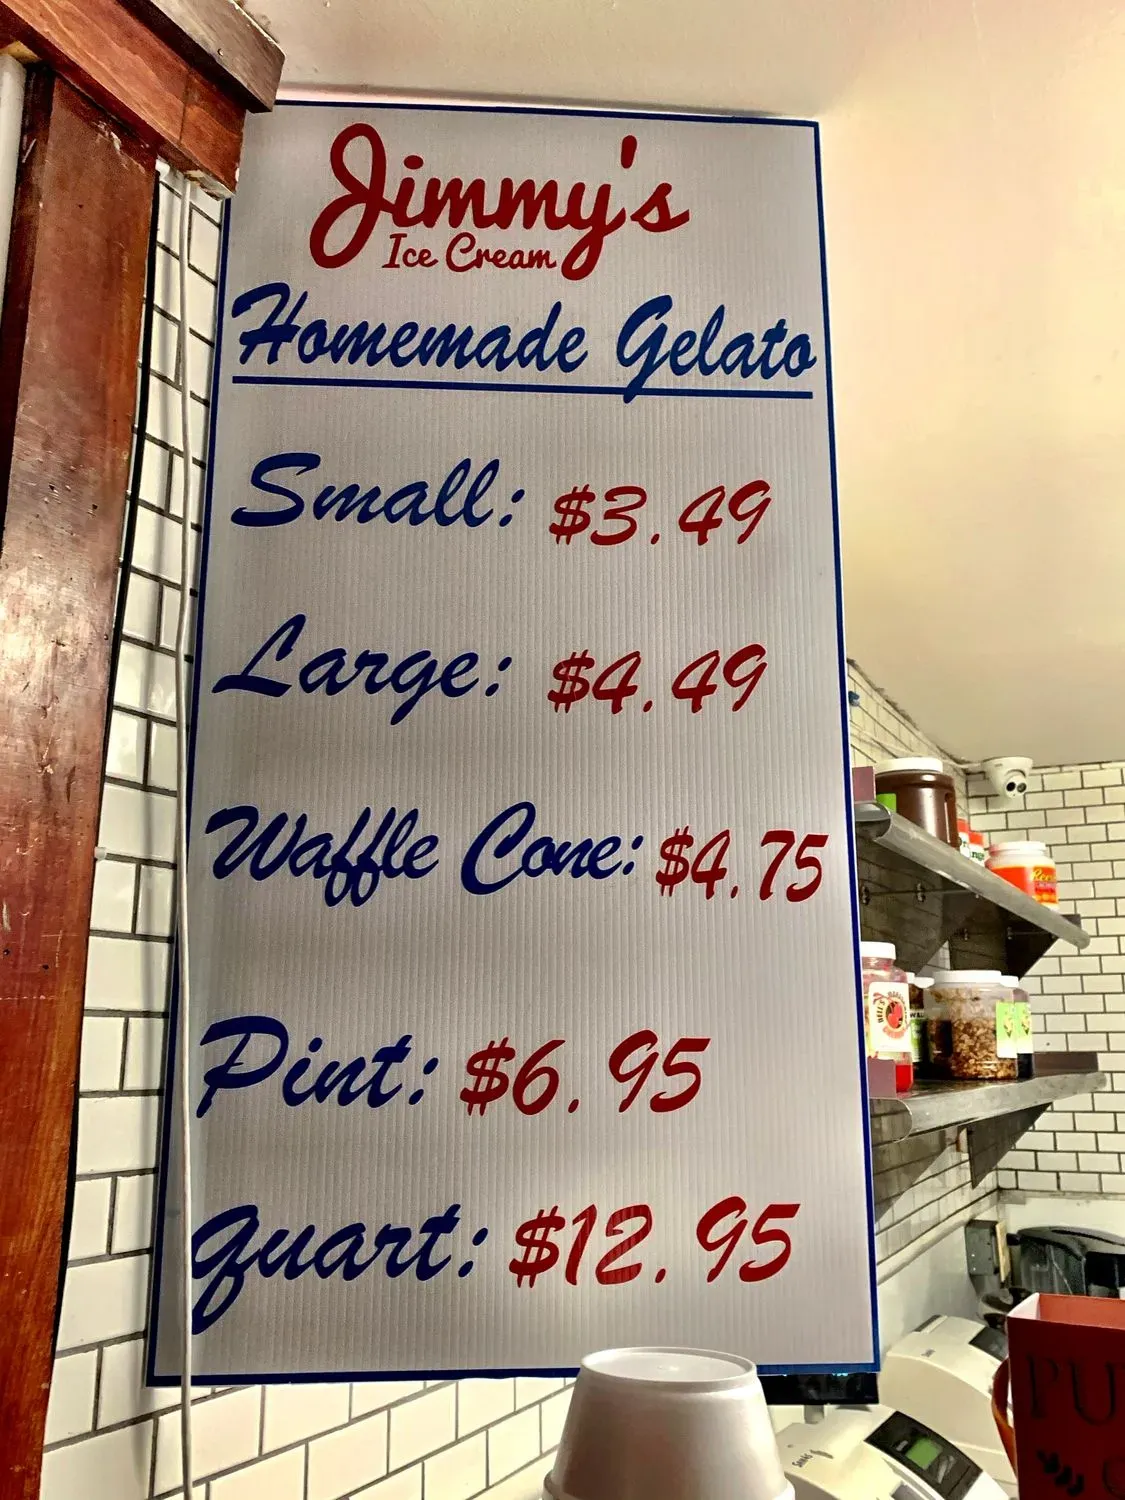 Jimmy's
Ice Cream
Homemade Gelato
Small: $3.49
Large: $4.49
Waffle Cone: $4.75
Pint: $6.95
quart: $12.95
PU